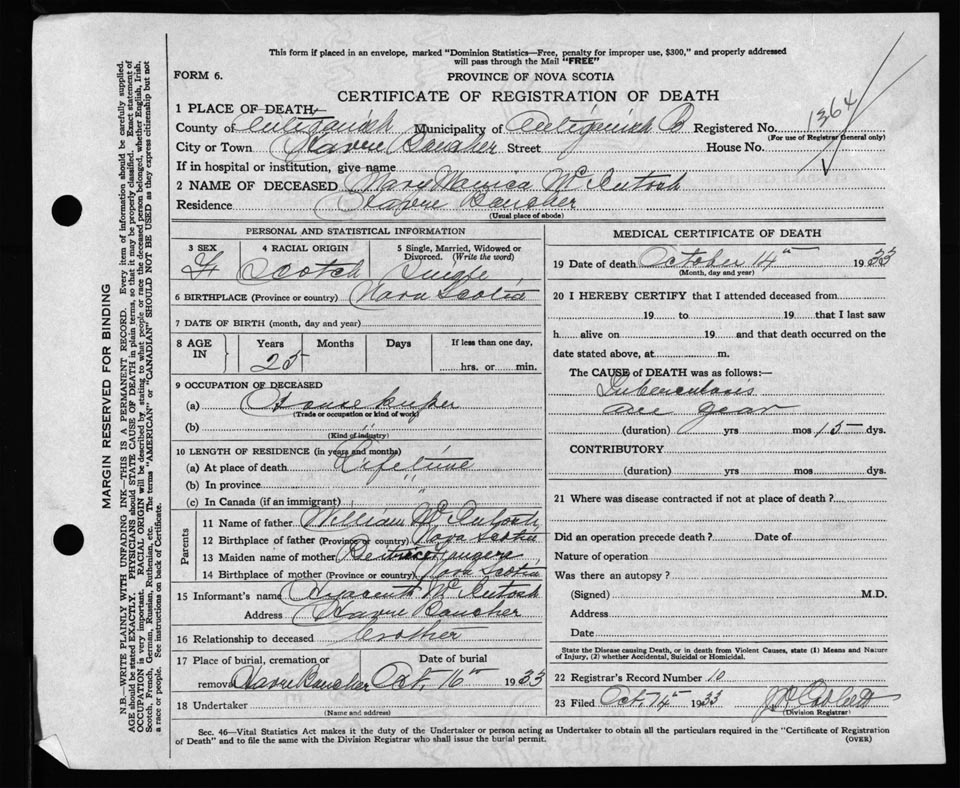 This form if placed in an envelope, marked "Dominion Statistics—Free, penalty for improper use, $300," and properly addressed
will pass through the Mail "FREE"
FORM 6.
PROVINCE OF NOVA SCOTIA
CERTIFICATE OF REGISTRATION OF DEATH
1 PLACE OF DEATH,
County of Antigonish Municipality of Antigonish Registered No. 1364
(For use of Registrar General only)
City or Town Havre Boucher Street House No.
If in hospital or institution, give name
2 NAME OF DECEASED Mary Monica McIntosh
Residence Havre Boucher
(Usual place of abode)
PERSONAL AND STATISTICAL INFORMATION
3 SEX 4 RACIAL ORIGIN 5 Single, Married, Widowed or
Divorced. (Write the word)
F Scotch Single
6 BIRTHPLACE (Province or country) Nova Scotia
7 DATE OF BIRTH (month, day and year)
8 AGE IN Years Months Days If less than one day,
25 hrs. or min.
9 OCCUPATION OF DECEASED
(a) Housekeeper
(Trade or occupation or kind of work)
(b)
(Kind of industry)
10 LENGTH OF RESIDENCE (in years and months)
(a) At place of death Lifetime
(b) In province "
(c) In Canada (if an immigrant) "
Parents
11 Name of father William McIntosh
12 Birthplace of father (Province or country) Nova Scotia
13 Maiden name of mother
14 Birthplace of mother (Province or country) Nova Scotia
15 Informant's name Hyacinth McIntosh
Address Havre Boucher
16 Relationship to deceased Brother
17 Place of burial, cremation or Date of burial
removal Havre Boucher Oct. 16th 1933
18 Undertaker
(Name and address)
MEDICAL CERTIFICATE OF DEATH
19 Date of death October 14th 1933
(Month, day and year)
20 I HEREBY CERTIFY that I attended deceased from
19 to 19 that I last saw
h alive on 19 and that death occurred on
date stated above, at m.
The CAUSE of DEATH was as follows:—
Tuberculosis
one year
(duration) yrs mos 15 dys.
CONTRIBUTORY
(duration) yrs mos dys.
21 Where was disease contracted if not at place of death?
Did an operation precede death? Date of
Nature of operation
Was there an autopsy?
(Signed) M.D.
Address
Date
State the Disease causing Death, or in death from Violent Causes, state (1) Means and Nature
of Injury, (2) whether Accidental, Suicidal or Homicidal.
22 Registrar's Record Number 10
23 Filed Oct. 14th 1933
(Division Registrar)
Sec. 46—Vital Statistics Act makes it the duty of the Undertaker or person acting as Undertaker to obtain all the particulars required in the "Certificate of Registration
of Death" and to file the same with the Division Registrar who shall issue the burial permit.
(OVER)
MARGIN RESERVED FOR BINDING
N.B.—WRITE PLAINLY WITH UNFADING INK—THIS IS A PERMANENT RECORD. Every item of information should be carefully supplied.
AGE should be stated EXACTLY. PHYSICIANS should STATE CAUSE OF DEATH in plain terms, so that it may be properly classified. Exact statement of
OCCUPATION is very important. RACIAL ORIGIN will be described by stating to what people or race the deceased person belonged, whether English, Irish,
Scotch, French, German, Russian, Ruthenian, etc. The terms "AMERICAN" or "CANADIAN" SHOULD NOT BE USED as they express citizenship but not
a race or people. See instructions on back of Certificate.